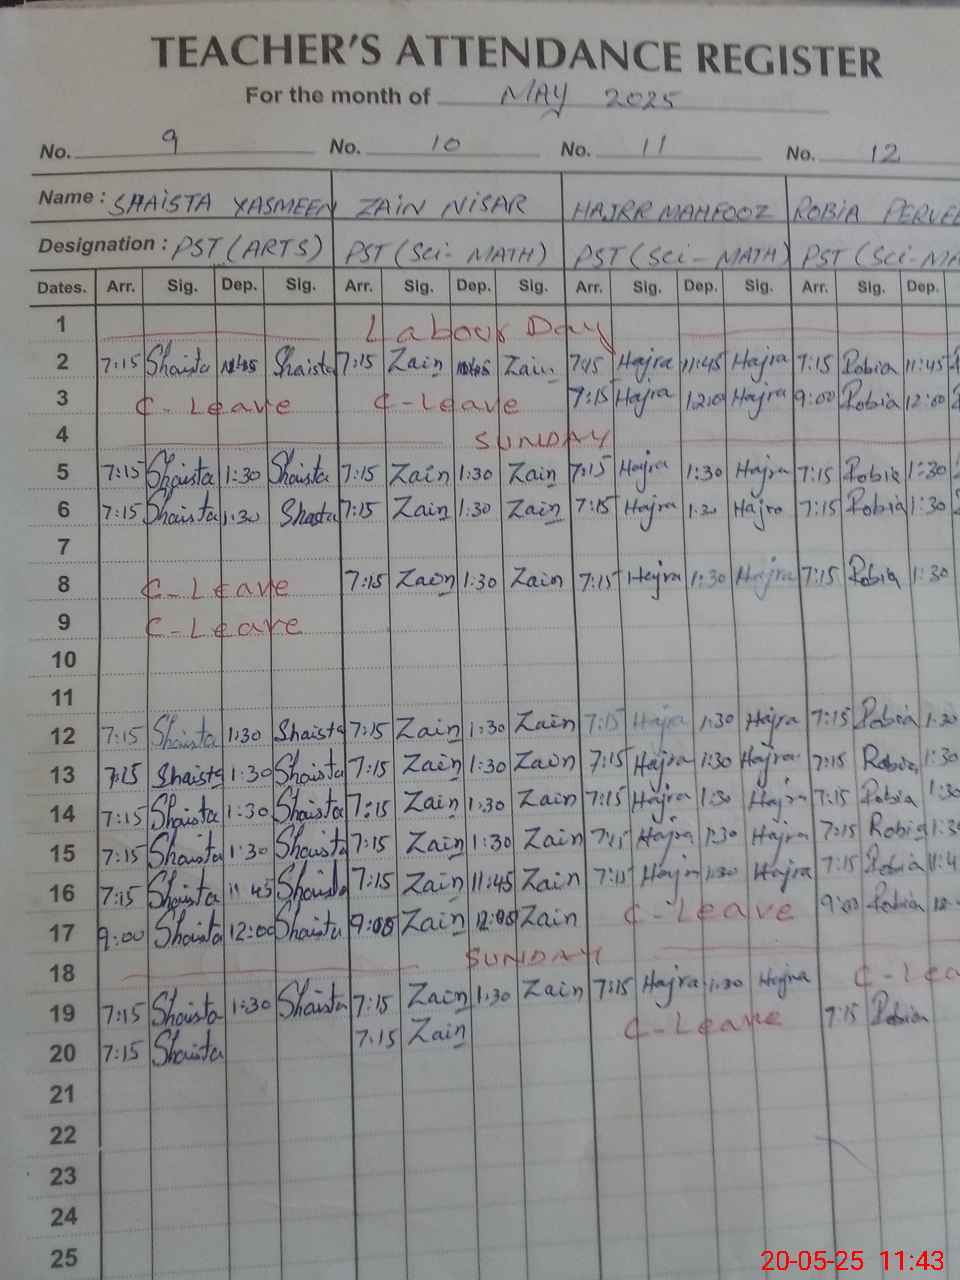 TEACHER'S ATTENDANCE REGISTER
For the month of MAY 2025
No. 9 No. 10 No. 11 No. 12
Name : SHAISTA YASMEEN ZAIN NISAR HAJRA MAHFOOZ ROBIA PERVEE
Designation : PST (ARTS) PST (Sci- MATH) PST (Sci - MATH) PST (Sci-MA
Dates. Arr. Sig. Dep. Sig. Arr. Sig. Dep. Sig. Arr. Sig. Dep. Sig. Arr. Sig. Dep.
1 Labour Day
2 7:15 Shaista Shaista 7:15 Zain Zain Hajra 11:45 Hajra 7:15 Robia 11:45
3 C-Leave C-Leave 7:15 Hajra 12:00 Hajra 9:00 Robia 12:00
4 SUNDAY
5 7:15 Shaista 1:30 Shaista 7:15 Zain 1:30 Zain 7:15 Hajra 1:30 Hajra 7:15 Robia 1:30
6 7:15 Shaista 1:30 Shasta 7:15 Zain 1:30 Zain 7:15 Hajra 1:30 Hajra 7:15 Robia 1:30
7
8 C-Leave 7:15 Zain 1:30 Zain 7:15 Hajra 1:30 Hajra 7:15 Robia 1:30
9 C-Leave
10
11
12 7:15 Shaista 1:30 Shaista 7:15 Zain 1:30 Zain 7:15 Hajra 1:30 Hajra 7:15 Robia 1:30
13 7:15 Shaista 1:30 Shaista 7:15 Zain 1:30 Zain 7:15 Hajra 1:30 Hajra 7:15 Robia 1:30
14 7:15 Shaista 1:30 Shaista 7:15 Zain 1:30 Zain 7:15 Hajra 1:30 Hajra 7:15 Robia 1:30
15 7:15 Shaista 1:30 Shaista 7:15 Zain 1:30 Zain 7:15 Hajra 1:30 Hajra 7:15 Robia 1:3
16 7:15 Shaista 11:45 Shaista 7:15 Zain 11:45 Zain 7:15 Hajra 1:30 Hajra 7:15 Robia 11:4
17 9:00 Shaista 12:00 Shaista 9:00 Zain 12:00 Zain C-Leave 9:00 Robia 12
18 SUNDAY
19 7:15 Shaista 1:30 Shaista 7:15 Zain 1:30 Zain 7:15 Hajra 1:30 Hajra C-Lea
20 7:15 Shaista 7:15 Zain C-Leave 7:15 Robia
21
22
23
24
25
20-05-25 11:43